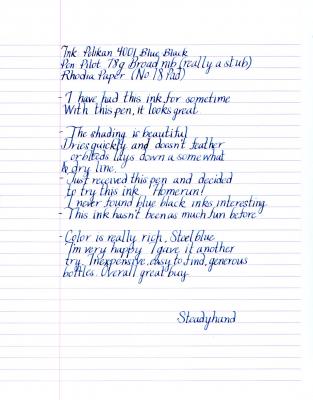 Ink Pelikan 4001 Blue Black
Pen Pilot 78g Broad nib (really a stub)
Rhodia Paper (No 18 Pad)
- I have had this ink for sometime
With this pen, it looks great
- The shading is beautiful
Dries quickly and doesn't feather
or bleeds lays down a somewhat
dry line.
- Just received this pen and decided
to try this ink Homerun!
I never found blue black inks interesting
- This ink hasn't been as much fun before
- Color is really rich, Steel blue
I'm very happy I gave it another
try. Inexpensive, easy to find, generous
bottles. Overall great buy
Steadyhand